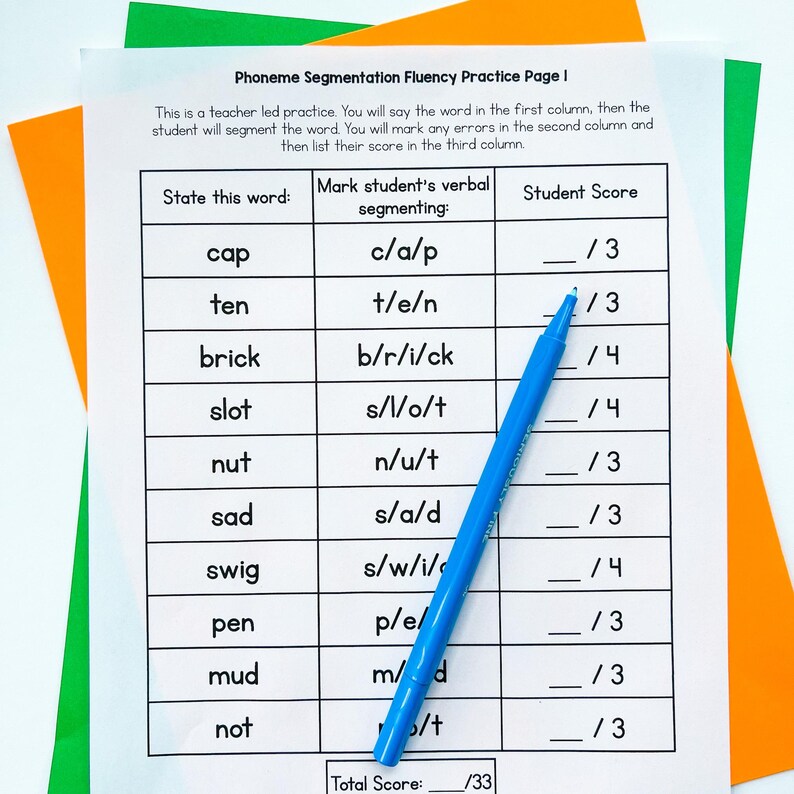 Phoneme Segmentation Fluency Practice Page 1
This is a teacher led practice. You will say the word in the first column, then the
student will segment the word. You will mark any errors in the second column and
then list their score in the third column.
State this word: Mark student's verbal segmenting: Student Score
cap c/a/p __ / 3
ten t/e/n __ / 3
brick b/r/i/ck __ / 4
slot s/l/o/t __ / 4
nut n/u/t __ / 3
sad s/a/d __ / 3
swig s/w/i/ __ / 4
pen p/e/ __ / 3
mud m/ d __ / 3
not /t __ / 3
Total Score: ___/33
SERIOUSLY FINE